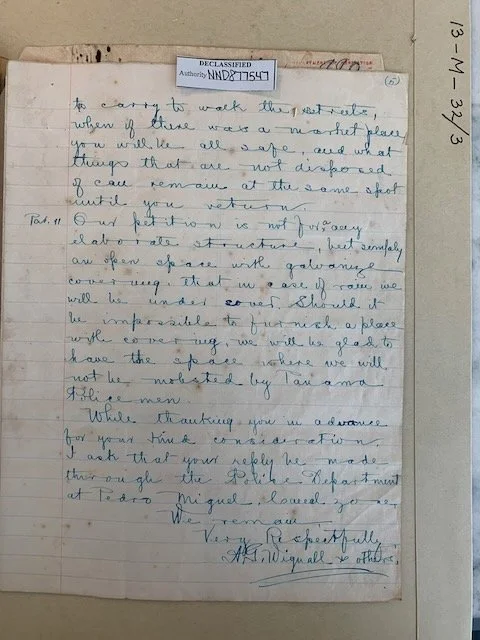 DECLASSIFIED
Authority NND877547
13-M-32/3
(5)
to carry to walk the streets,
when if there was a market place
you will be all safe, and what
things that are not disposed
of can remain at the same spot
until you return.
Par. 11 Our petition is not for any
elaborate structure, but simply
an open space with galvanize
covering, that in case of rain we
will be under cover. Should it
be impossible to furnish a place
with covering, we will be glad to
have the space where we will
not be molested by Panama
Policemen.
While thanking you in advance
for your kind consideration.
I ask that your reply be made
through the Police Department
at Pedro Miguel, Canal Zone,
We remain
Very Respectfully,
A.G. Wignall & others.